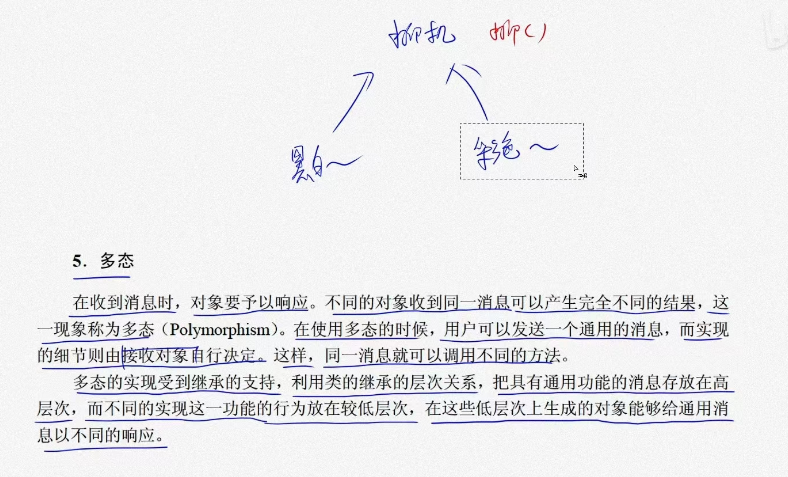 柳机 柳()
黑白～
彩色～
5．多态
在收到消息时，对象要予以响应。不同的对象收到同一消息可以产生完全不同的结果，这
一现象称为多态（Polymorphism）。在使用多态的时候，用户可以发送一个通用的消息，而实现
的细节则由接收对象自行决定。这样，同一消息就可以调用不同的方法。
多态的实现受到继承的支持，利用类的继承的层次关系，把具有通用功能的消息存放在高
层次，而不同的实现这一功能的行为放在较低层次，在这些低层次上生成的对象能够给通用消
息以不同的响应。